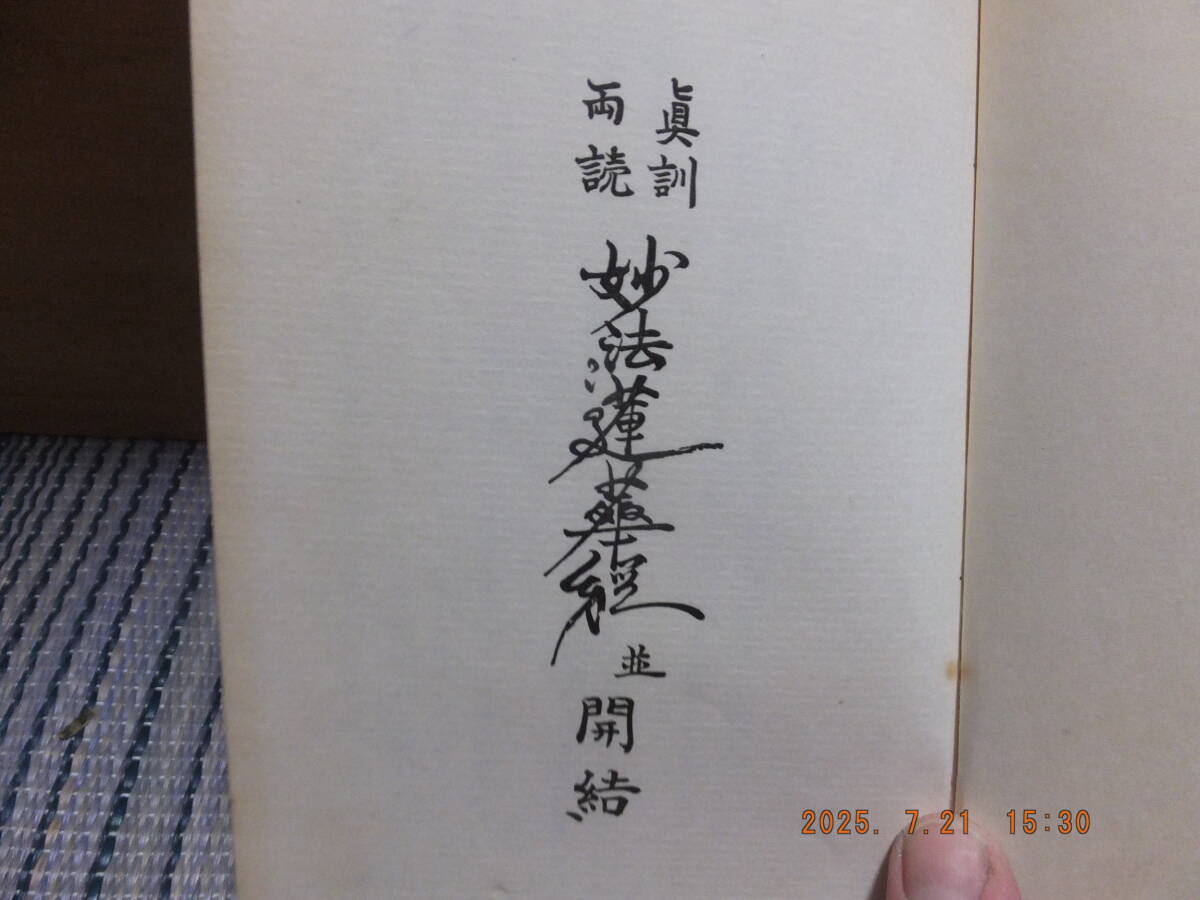 眞訓
両読
妙法蓮華経
並
開結
2025. 7.21 15:30